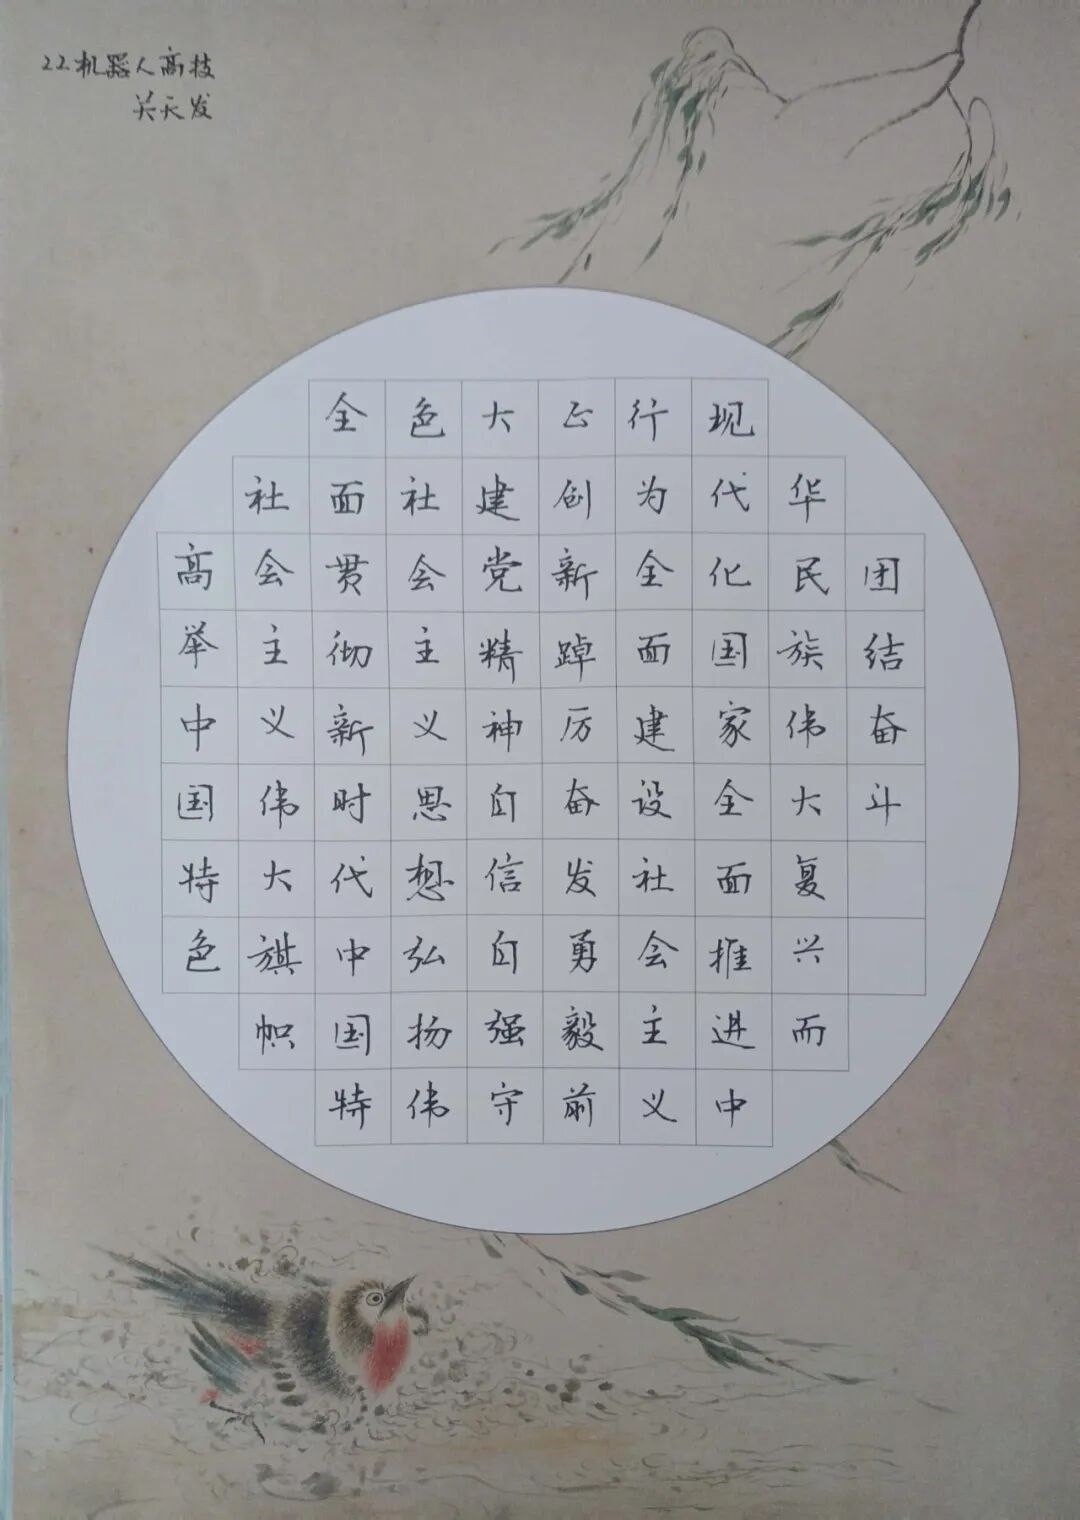 22机器人高技
高举中国特色
社会主义伟大旗帜
全面贯彻新时代中国特
色社会主义思想弘扬伟
大建党精神自信自强守
正创新踔厉奋发勇毅前
行为全面建设社会主义
现代化国家全面推进中
华民族伟大复兴而
团结奋斗